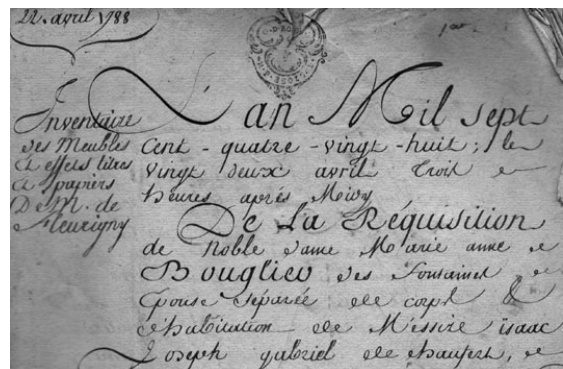 22. avril 1788
Inventaire
des Meubles
et effets titres
et papiers
De M. de
fleurigny
L'an Mil sept
Cent - quatre - vingt - huit ; le
vingt deux avril trois
heures après Midy
De La Réquisition
de Noble dame Marie anne
Bouglier des fontaines
Epouse séparée de corps &
d'habitation de Messire isaac
Joseph gabriel de chaufert, e